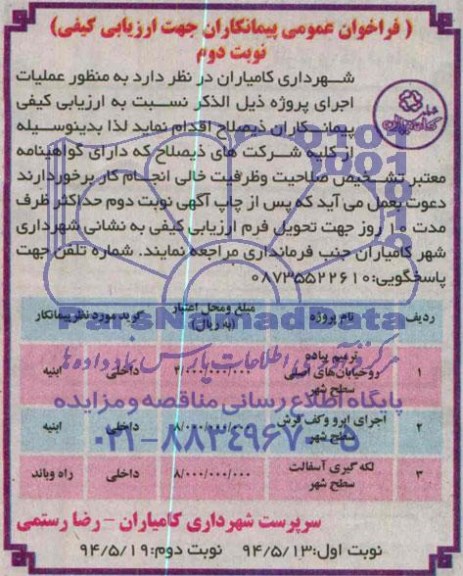 ( فراخوان عمومی پیمانکاران جهت ارزیابی کیفی)
نوبت دوم
شهرداری کامیاران در نظر دارد به منظور عملیات
اجرای پروژه ذیل الذکر نسبت به ارزیابی کیفی
پیمانکاران ذیصلاح اقدام نماید لذا بدینوسیله
از کلیه شرکت های ذیصلاح که دارای گواهینامه
معتبر تشخیص صلاحیت وظرفیت خالی انجام کار برخوردارند
دعوت بعمل می آید که پس از چاپ آگهی نوبت دوم حداکثر ظرف
مدت ۱۰ روز جهت تحویل فرم ارزیابی کیفی به نشانی شهرداری
شهر کامیاران جنب فرمانداری مراجعه نمایند. شماره تلفن جهت
پاسخگویی:۰۸۷۳۵۵۲۲۶۱۰
ردیف نام پروژه مبلغ ومحل اعتبار (به ریال) گرید مورد نظر پیمانکار
۱ ترمیم پیاده روخیابان‌های اصلی سطح شهر ۴/۰۰۰/۰۰۰/۰۰۰ داخلی ابنیه
۲ اجرای ابرو وکف فرش سطح شهر ۸/۰۰۰/۰۰۰/۰۰۰ داخلی ابنیه
۳ لکه گیری آسفالت سطح شهر ۸/۰۰۰/۰۰۰/۰۰۰ داخلی راه وباند
سرپرست شهرداری کامیاران - رضا رستمی
نوبت اول:۹۴/۵/۱۳ نوبت دوم:۹۴/۵/۱۹
ParsNamadData
مرکز فرآوری اطلاعات پارس نماد داده ها
پایگاه اطلاع رسانی مناقصه و مزایده
۰۲۱-۸۸۳۴۹۶۷۰-۵